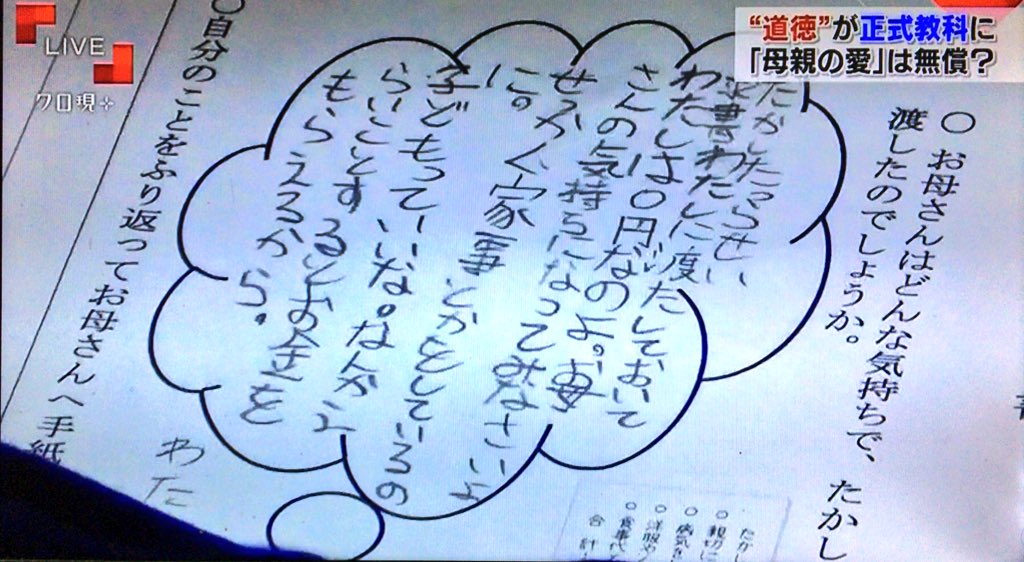 LIVE
クロ現+
“道徳”が正式教科に
「母親の愛」は無償?
○ お母さんはどんな気持ちで、たかし
渡したのでしょうか。
たかしったらせい
求書わたしに度だしておいて
わたしは0円なのよ。お母
さんの気持ちになってみなさいよ
せっかく家事とかをしているの
に。
子どもっていいな。なんかえ
らいことするとお金を
もらえるから。
たかし
○ 親切に
○ 病気を
○ 洋服や
○ 食事代
合計
○ 自分のことをふり返ってお母さんへ手紙
わた